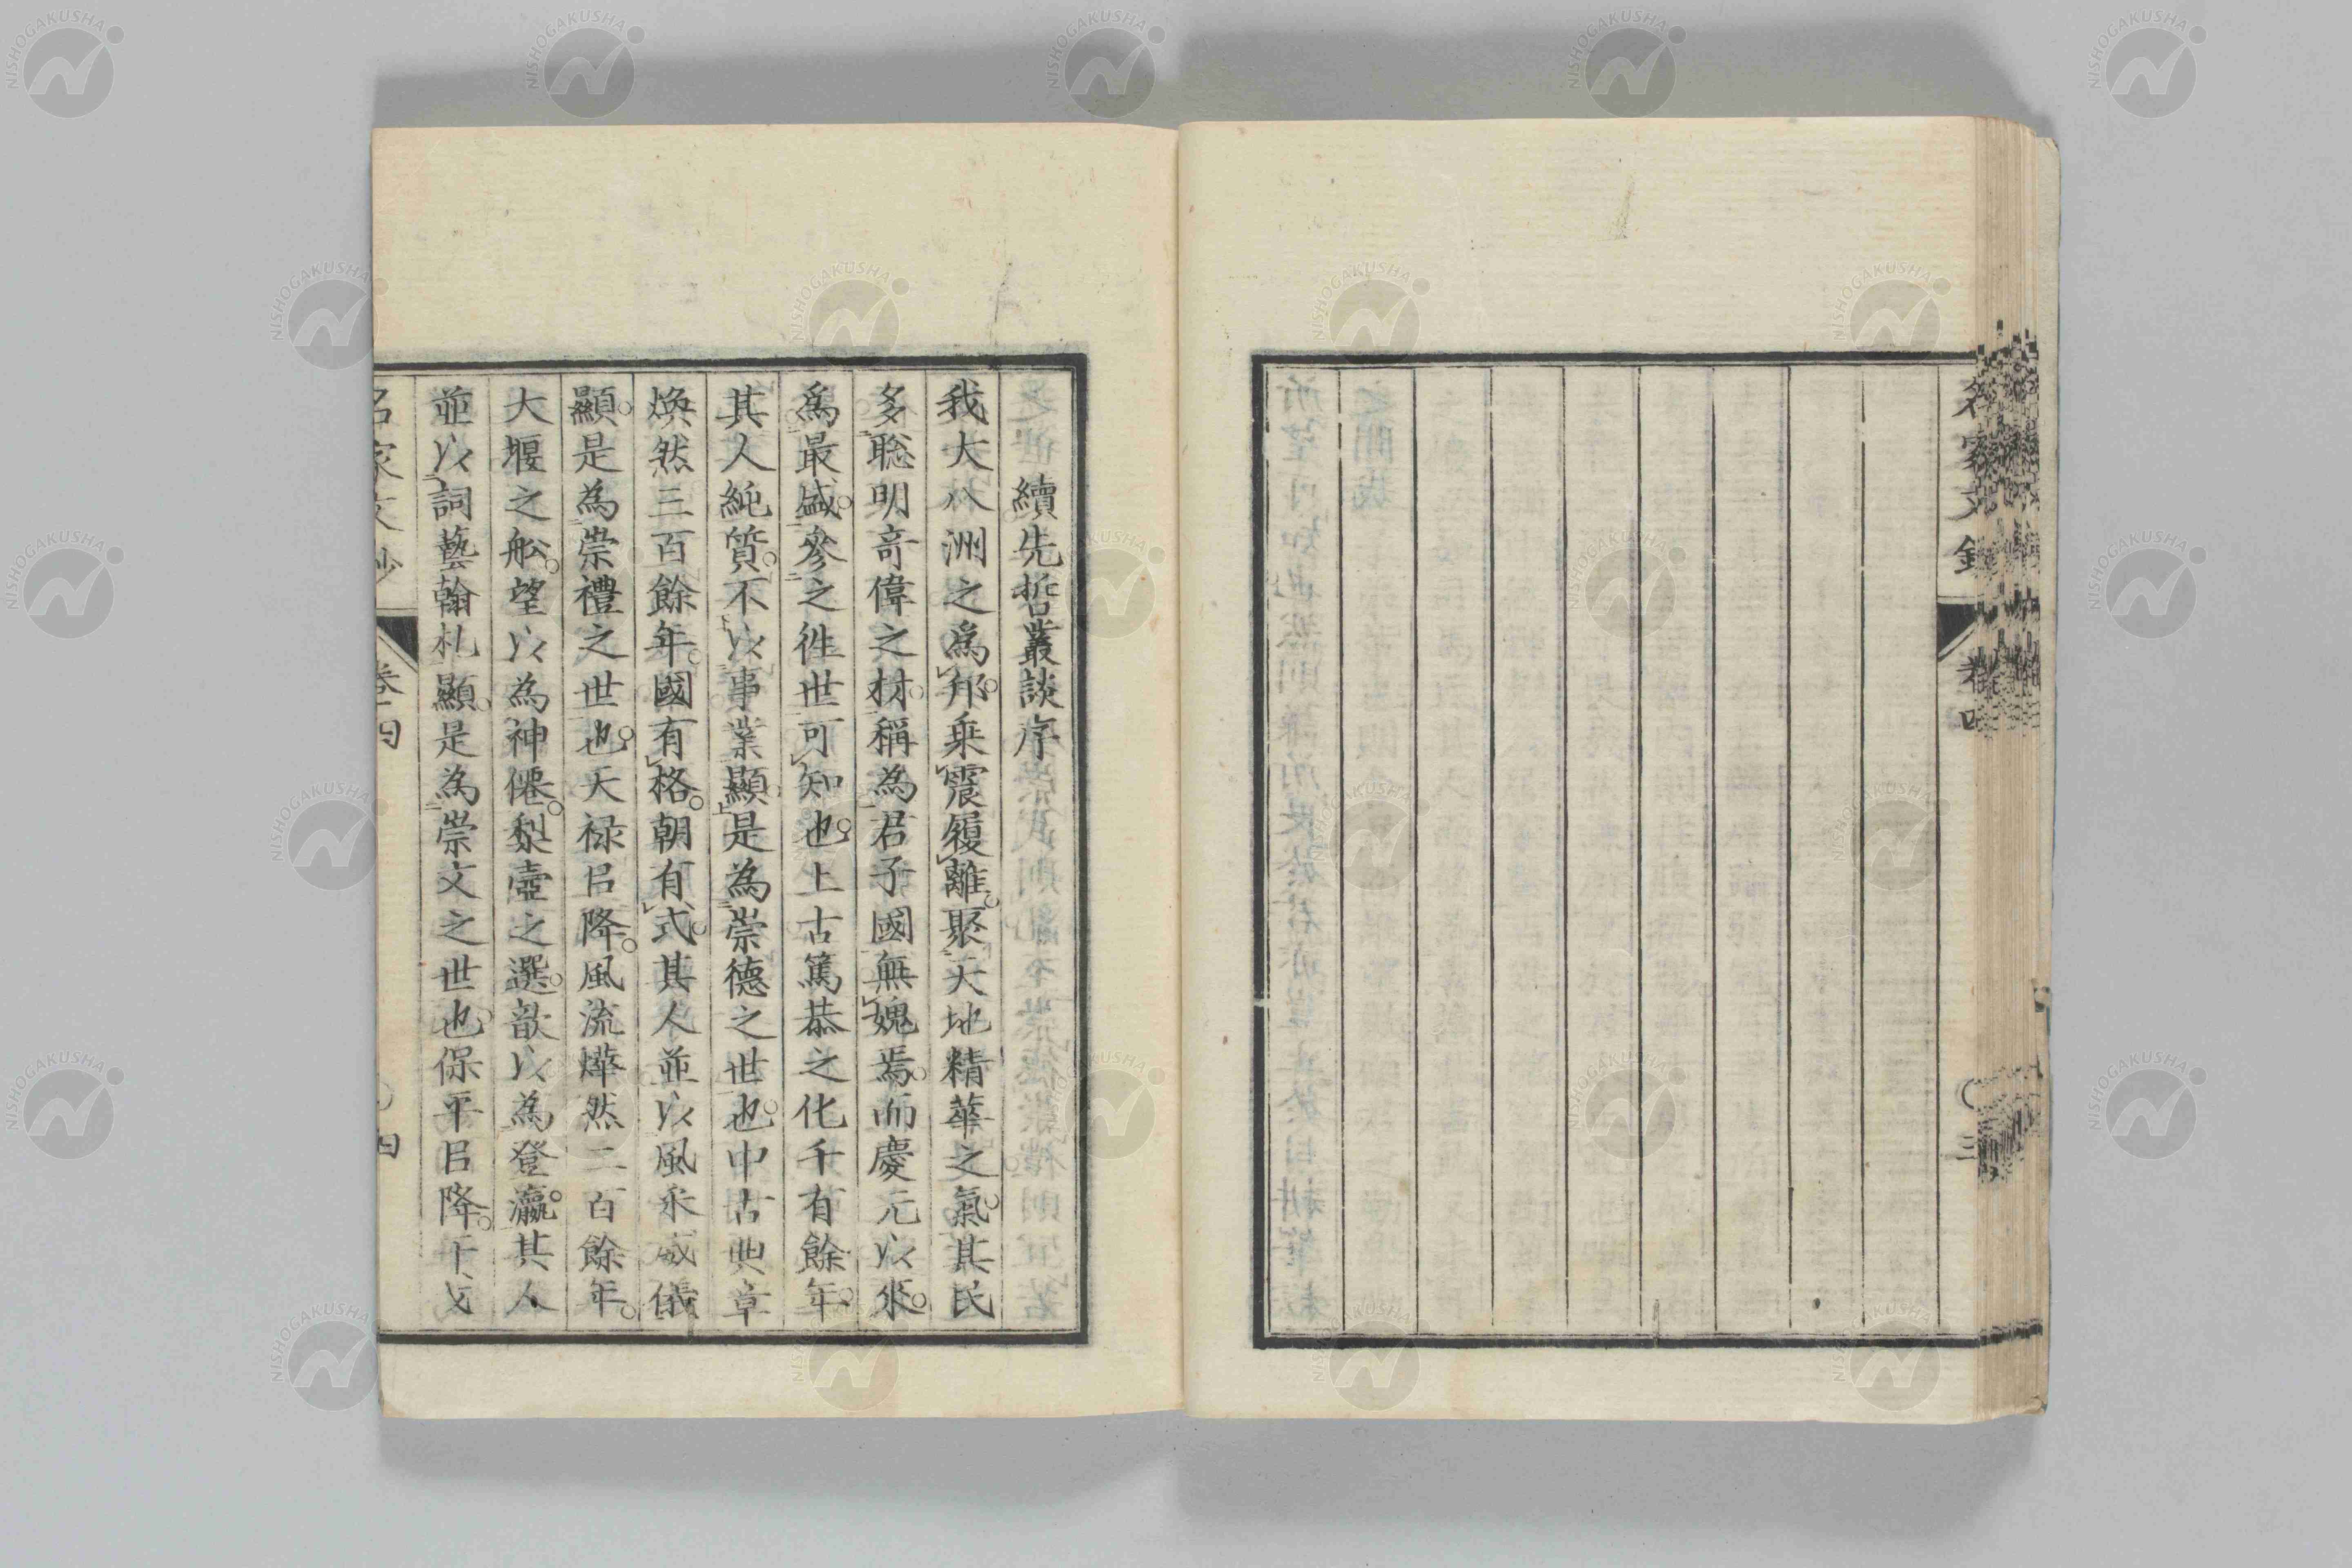 名家文鈔 卷四 〇三
續先哲叢談序
我大八洲之爲邦乗震履離聚天地精華之氣其民
多聡明竒偉之材稱為君子國無媿焉而慶元以来
爲最盛參之徃世可知也上古篤恭之化千有餘年
其人純質不以事業顯是為崇德之世也中古典章
煥然三百餘年國有格朝有式其人並以風采威儀
顯是為崇禮之世也天禄㠯降風流燁然二百餘年
大堰之舩望以為神僊梨壼之選歆以為登瀛其人
並以詞藝翰札顯是為崇文之世也保平㠯降干戈
名家文鈔 卷四 〇四
NISHOGAKUSHA